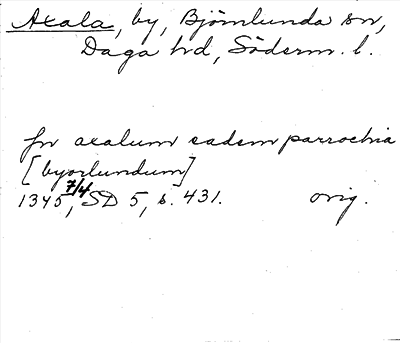 Axala, by, Björnlunda sn,
Daga hd, Söderm. l.
in axalum eadem parrochia
[byorlundum]
1345 7/4, SD 5, s. 431. orig.